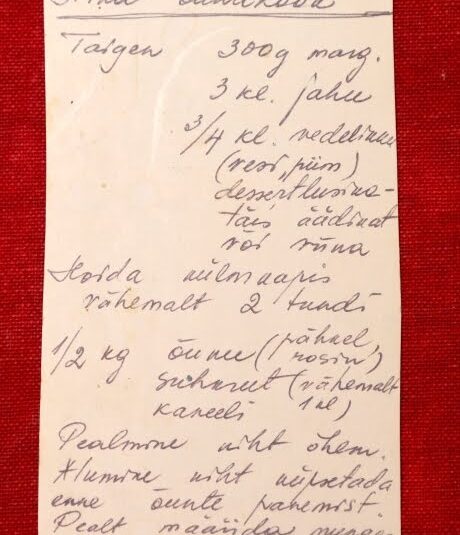 Taigen 300g marg.
3 kl. jahu
3/4 kl. vedelikku
(vesi, piim)
dessertlusika-
täis äädikat
või viina
Hoida külmkapis
vähemalt 2 tundi
1/2 kg õunu (pähkel,
rosin)
suhkrut (vähemalt
kaneeli 1 kl)
Pealmine kiht õhem.
Alumine kiht küpsetada
enne õunte panemist.
Pealt määrida